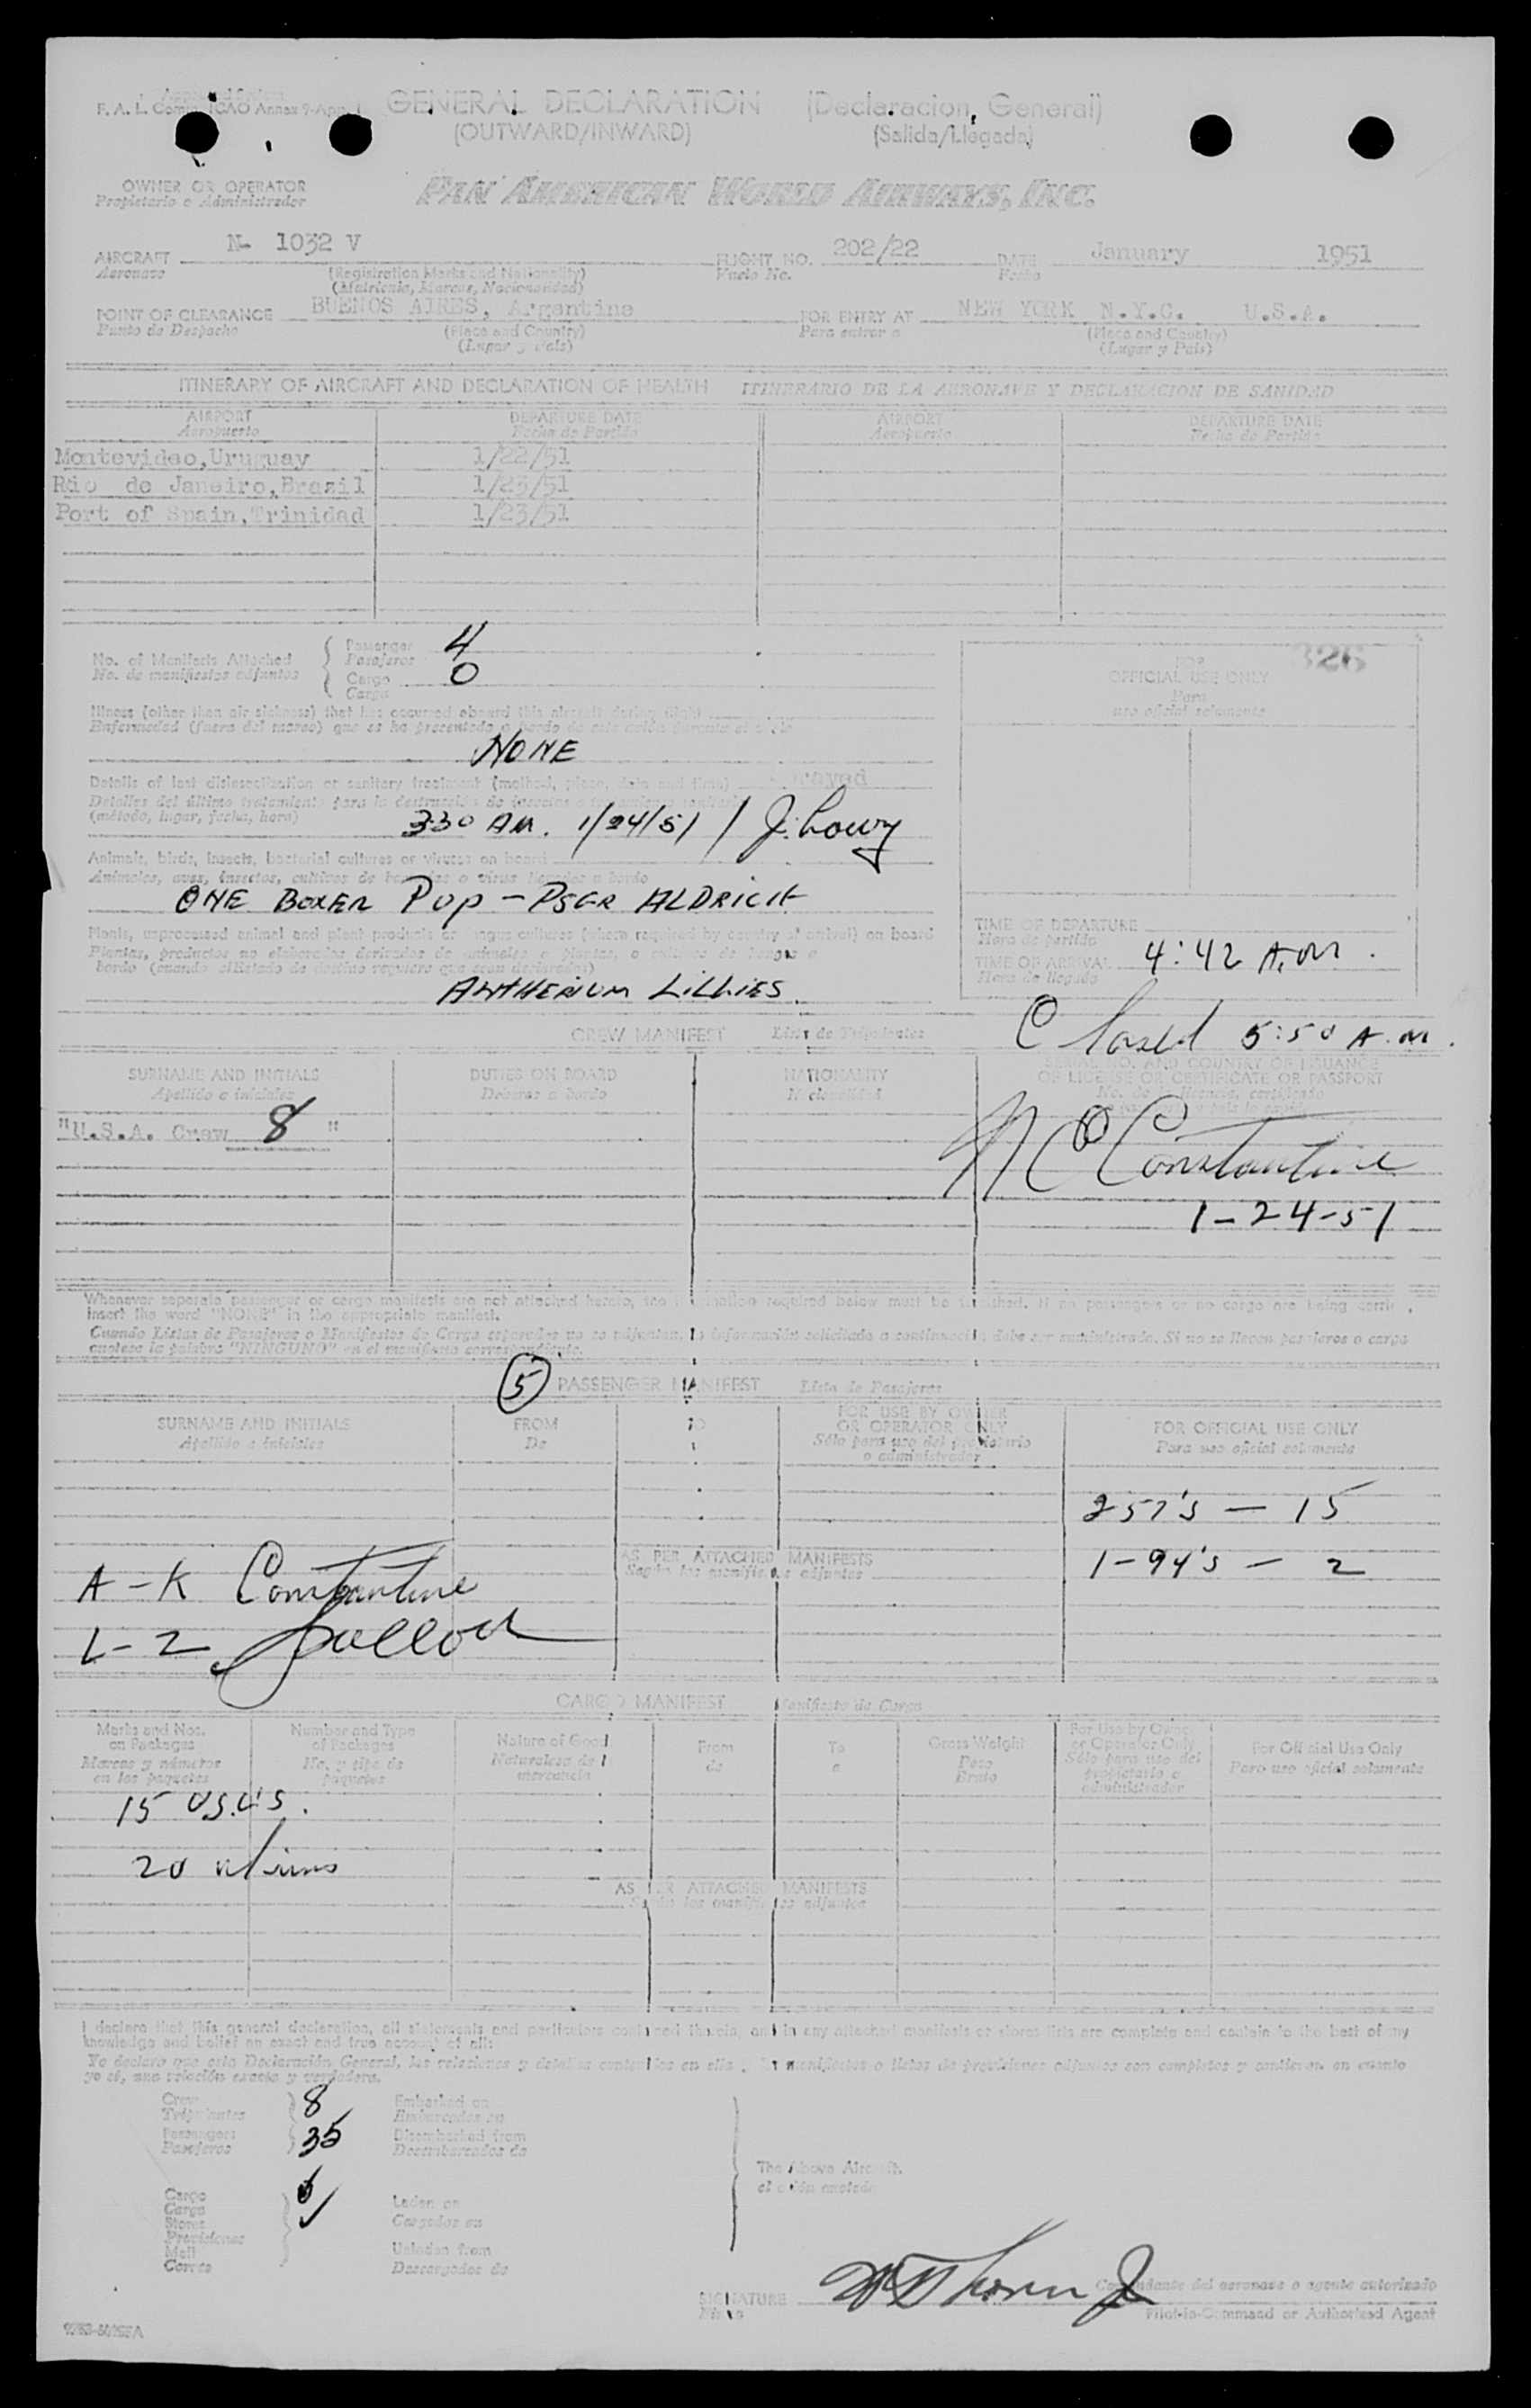 F. A. L. Com. ICAO Annex 9-App. 1
GENERAL DECLARATION (Declaracion, General)
(OUTWARD/INWARD) (Salida/Llegada)
OWNER OR OPERATOR
Propietario o Administrador
PAN AMERICAN WORLD AIRWAYS, INC.
AIRCRAFT N- 1032 V FLIGHT NO. 202/22 DATE January 1951
Aeronave (Registration Marks and Nationality) Vuelo No. Fecha
(Matricula, Marcas, Nacionalidad)
POINT OF CLEARANCE BUENOS AIRES, Argentina FOR ENTRY AT NEW YORK N.Y.C. U.S.A.
Punto de Despacho (Place and Country) Para entrar a (Place and Country)
(Lugar y Pais) (Lugar y Pais)
ITINERARY OF AIRCRAFT AND DECLARATION OF HEALTH ITINERARIO DE LA AERONAVE Y DECLARACION DE SANIDAD
AIRPORT DEPARTURE DATE AIRPORT DEPARTURE DATE
Aeropuerto Fecha de Partida Aeropuerto Fecha de Partida
Montevideo, Uruguay 1/22/51
Rio de Janeiro, Brazil 1/23/51
Port of Spain, Trinidad 1/23/51
No. of Manifests Attached
No. de manifiestos adjuntos
Passenger 4
Pasajeros
Cargo 0
Carga
326
FOR
OFFICIAL USE ONLY
Para
uso oficial solamente
Illness (other than air sickness) that has occurred aboard this aircraft during flight
NONE
Details of last disinsectisation or sanitary treatment (method, place, date and time)
(método, lugar, fecha, hora)
330 AM. 1/24/51 / J. Lowy
Animals, birds, insects, bacterial cultures or viruses on board
ONE BOXER PUP - PSGR ALDRICH
Plants, unprocessed animal and plant products or fungus cultures (where required by country of arrival) on board
ANTHERIUM LILLIES.
TIME OF DEPARTURE
Hora de partida
TIME OF ARRIVAL 4:42 A.M.
Hora de llegada
Closed 5:50 A.M.
CREW MANIFEST Lista de Tripulantes
SURNAME AND INITIALS DUTIES ON BOARD NATIONALITY
Apellido e iniciales Deberes a bordo Nacionalidad
SERIAL NO. AND COUNTRY OF ISSUANCE
OF LICENSE OR CERTIFICATE OR PASSPORT
"U.S.A. Crew 8 "
Constantine
1-24-51
Whenever separate passenger or cargo manifests are not attached hereto, the information required below must be furnished. If no passengers or no cargo are being carried,
insert the word "NONE" in the appropriate manifest.
Cuando Listas de Pasajeros o Manifiestos de Carga separados no se adjuntan, la información solicitada a continuación debe ser suministrada. Si no se llevan pasajeros o carga
anotese la palabra "NINGUNO" en el manifiesto correspondiente.
5 PASSENGER MANIFEST Lista de Pasajeros
SURNAME AND INITIALS FROM TO
Apellido e iniciales De
FOR USE BY OWNER
OR OPERATOR ONLY
Sólo para uso del propietario
o administrador
FOR OFFICIAL USE ONLY
Para uso oficial solamente
257's - 15
1-94's - 2
AS PER ATTACHED MANIFESTS
Según los manifiestos adjuntos
A - K Constantine
L - Z
CARGO MANIFEST Manifiesto de Carga
Marks and Nos.
on Packages
Marcas y números
en los paquetes
Number and Type
of Packages
No. y tipo de
paquetes
Nature of Goods
Naturaleza de la
mercancia
From
de
To
a
Gross Weight
Peso
Bruto
For Use by Owner
or Operator Only
Sólo para uso del
propietario o
administrador
For Official Use Only
Para uso oficial solamente
15 U.S.C's.
20 aliens
AS PER ATTACHED MANIFESTS
Según los manifiestos adjuntos
I declare that this general declaration, all statements and particulars contained therein, and in any attached manifests or stores lists are complete and contain to the best of my
knowledge and belief an exact and true account of all:
Yo declaro que esta Declaración General, las relaciones y detalles contenidos en ella
Crew 8 Embarked on
Tripulantes Embarcados en
Passengers 35 Disembarked from
Pasajeros Desembarcados de
The Above Aircraft.
Cargo
Carga
Stores
Provisiones
Mail
Correo
Laden on
Cargados en
Unladen from
Descargados de
SIGNATURE
Comandante del aeronave o agente autorizado
Pilot-in-Command or Authorized Agent